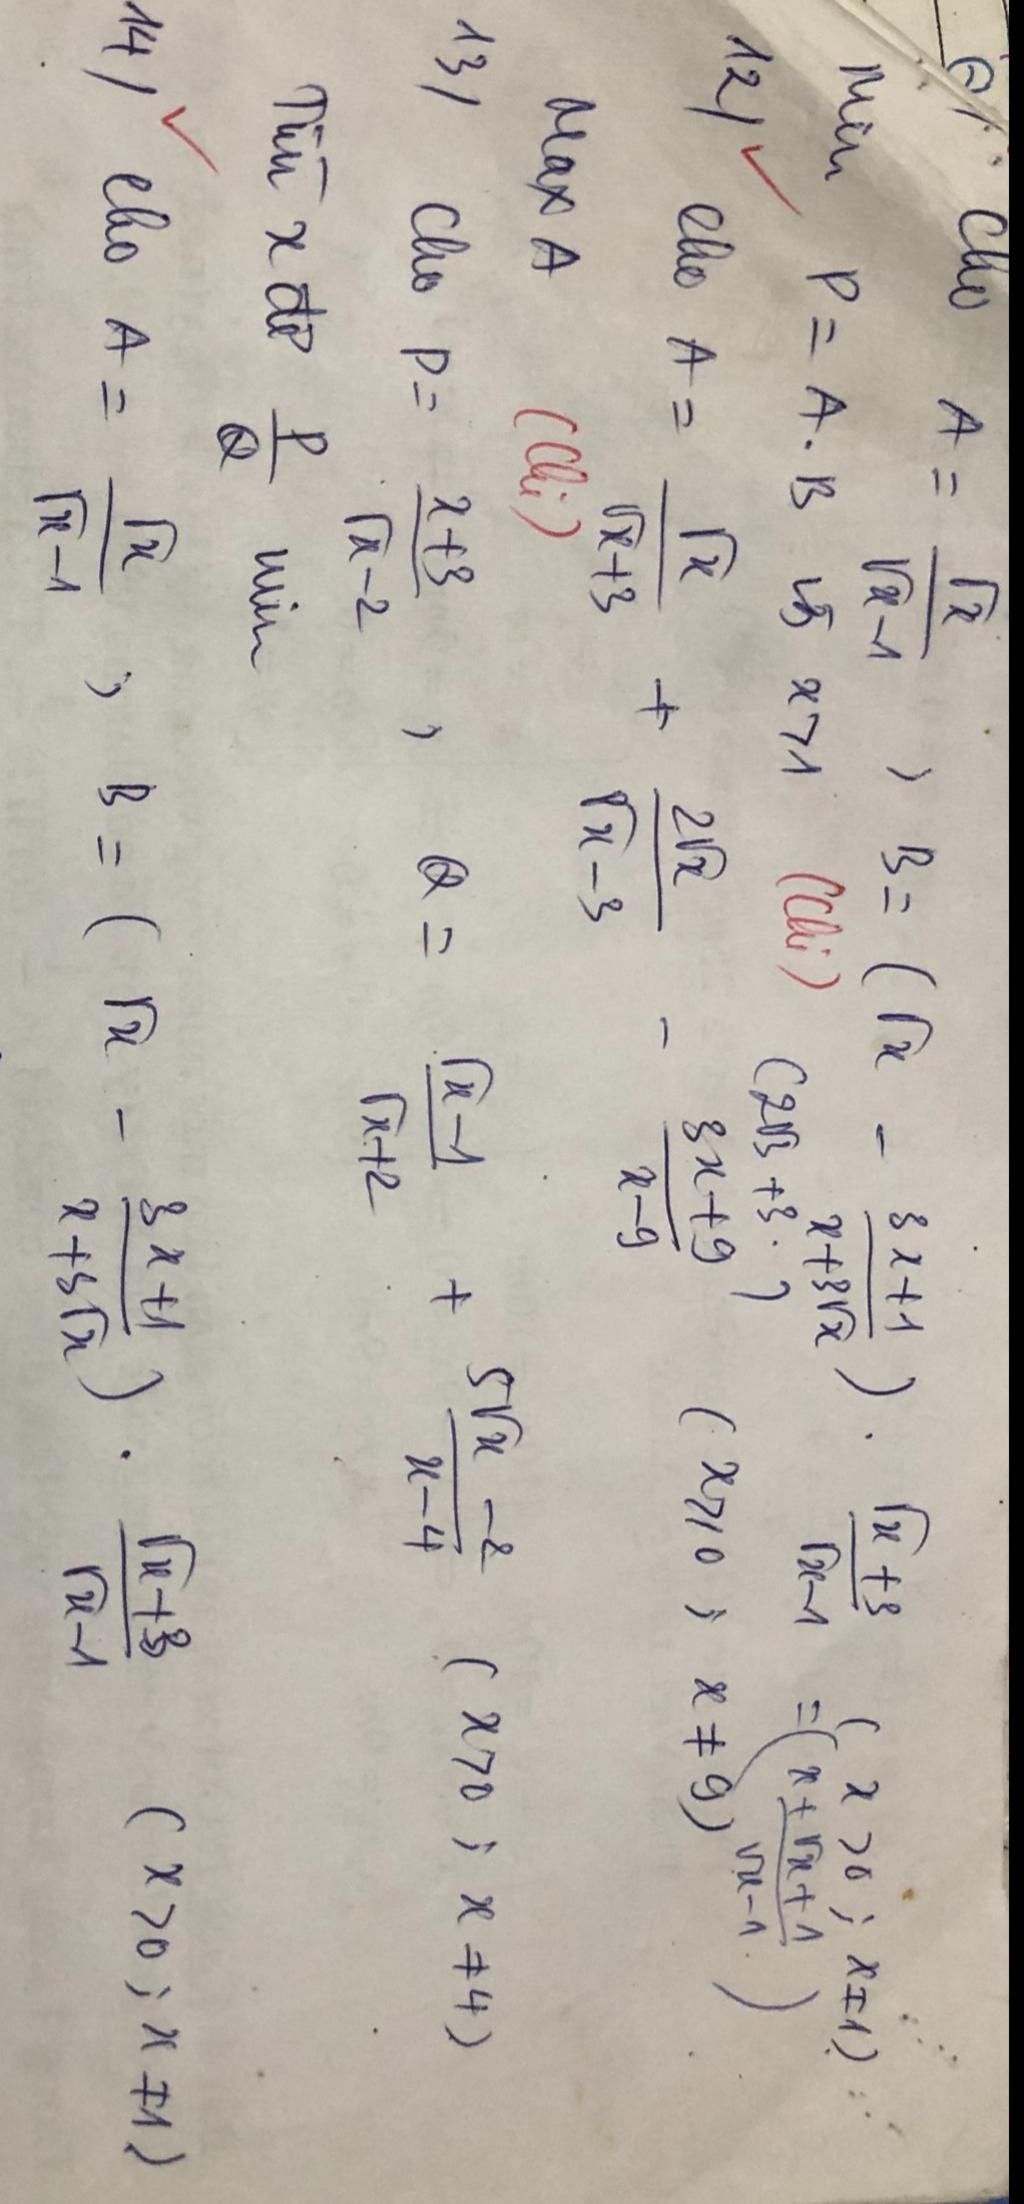 Cho A = √x / (√x - 1) , B = (√x - (3x+1) / (x+3√x)) . (√x+3) / (√x-1) (x>0; x≠1)
Min P = A.B với x>1 (Chi) (2√3+3.) = ((x+√x+1) / (√x-1))
12/ ✓ Cho A = √x / (√x+3) + 2√x / (√x-3) - (3x+9) / (x-9) (x≥0; x≠9)
Max A (Chi)
13/ Cho P = (x+3) / (√x-2) , Q = (√x-1) / (√x+2) + (5√x-2) / (x-4) (x>0; x≠4)
Tìm x để P/Q min
14/ ✓ Cho A = √x / (√x-1) , B = (√x - (3x+1) / (x+3√x)) . (√x+3) / (√x-1) (x>0; x≠1)